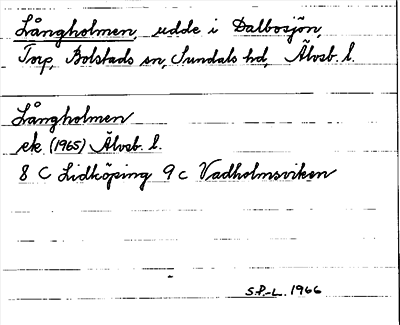 Långholmen, udde i Dalbosjön,
Torp, Bolstads sn, Sundals hd, Älvsb. l.
Långholmen
ek (1965) Älvsb. l.
8 C Lidköping 9 c Vadholmsviken
S.P.-L. 1966